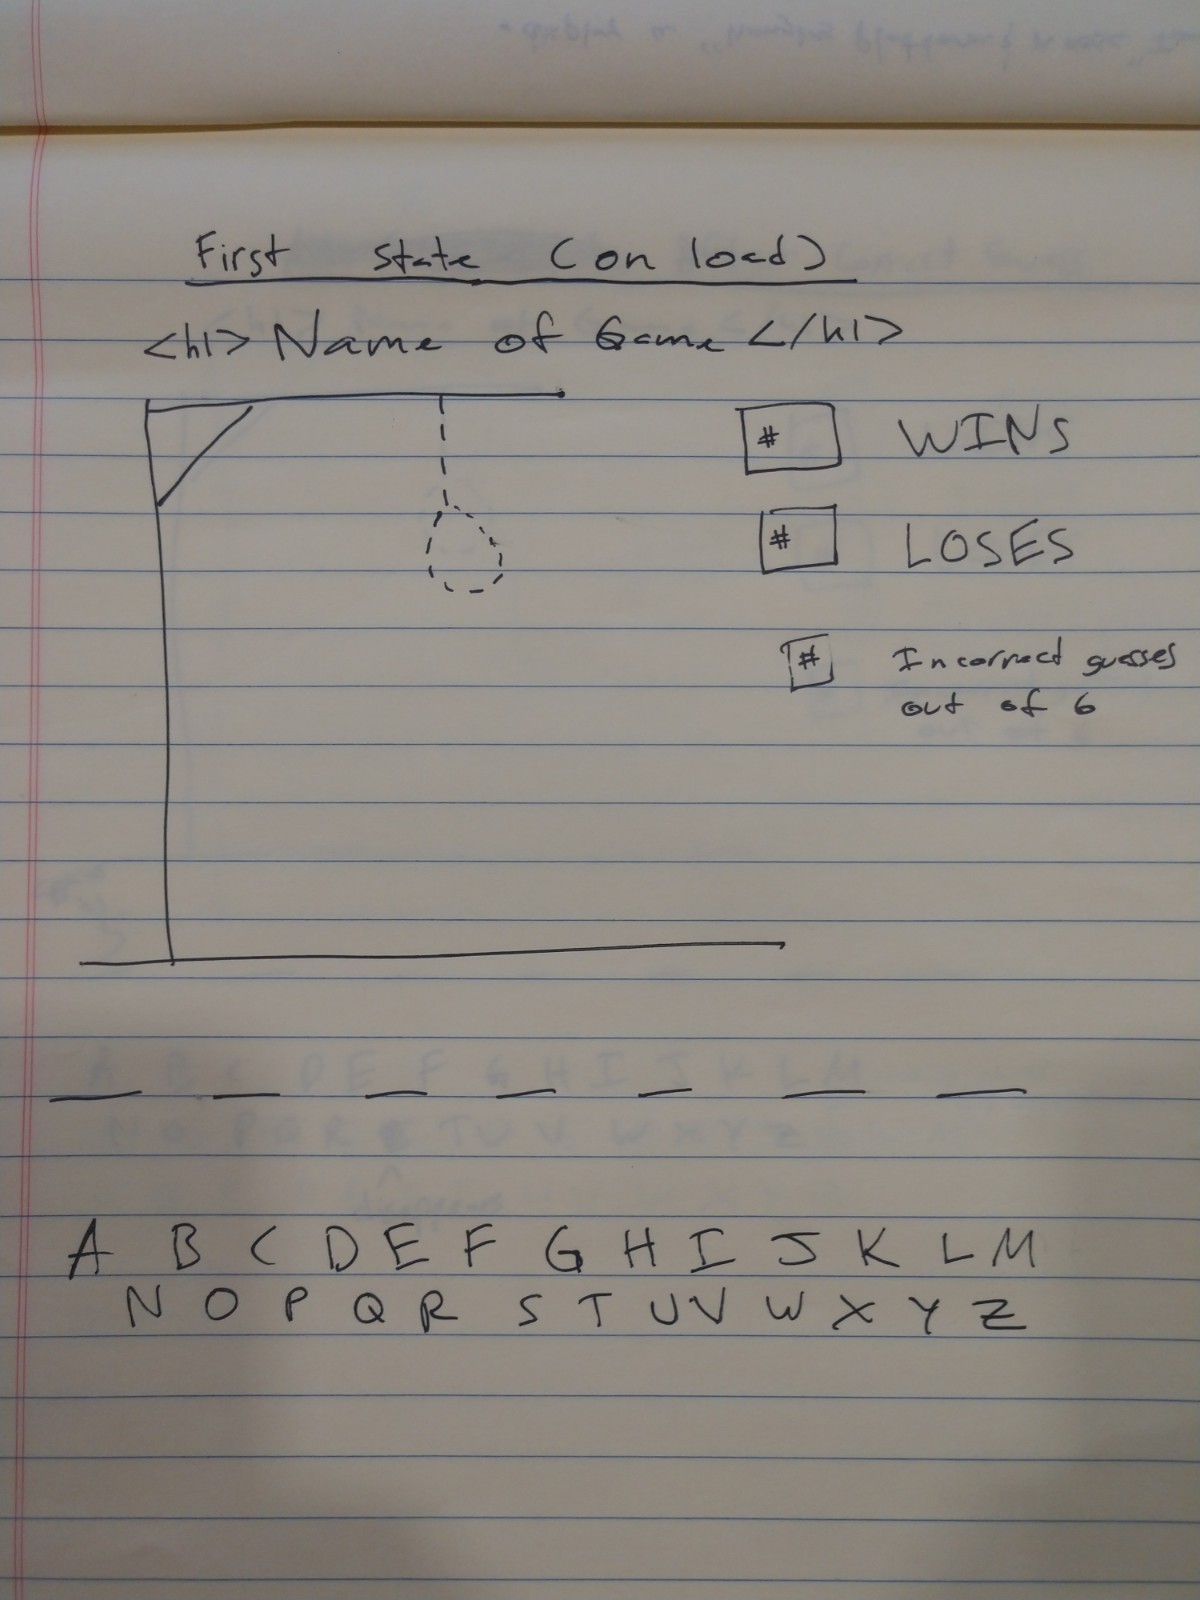 First state (on load)
<h1> Name of Game </h1>
# WINS
# LOSES
# Incorrect guesses
out of 6
A B C D E F G H I J K L M
N O P Q R S T U V W X Y Z